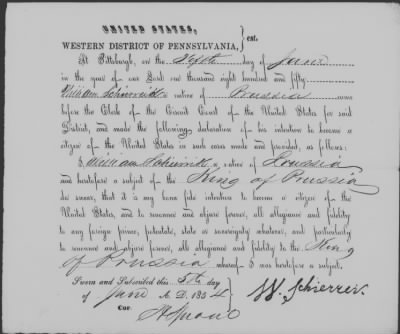 UNITED STATES,
WESTERN DISTRICT OF PENNSYLVANIA, } sct.
At Pittsburgh, on the Fifth day of June
in the year of our Lord one thousand eight hundred and fifty
William a native of Prussia came
before the Clerk of the Circuit Court of the United States for said
District, and made the following declaration of his intention to become a
citizen of the United States in such cases made and provided, as follows:
I, William a native of Prussia
and heretofore a subject of the King of Prussia
do swear, that it is my bona fide intention to become a citizen of the
United States, and to renounce and abjure forever, all allegiance and fidelity
to any foreign prince, potentate, state or sovereignty whatever, and particularly
to renounce and abjure forever, all allegiance and fidelity to the King
of Prussia whereof I was heretofore a subject.
Sworn and Subscribed this 5th day
of June A. D. 1854
W.
Cur.